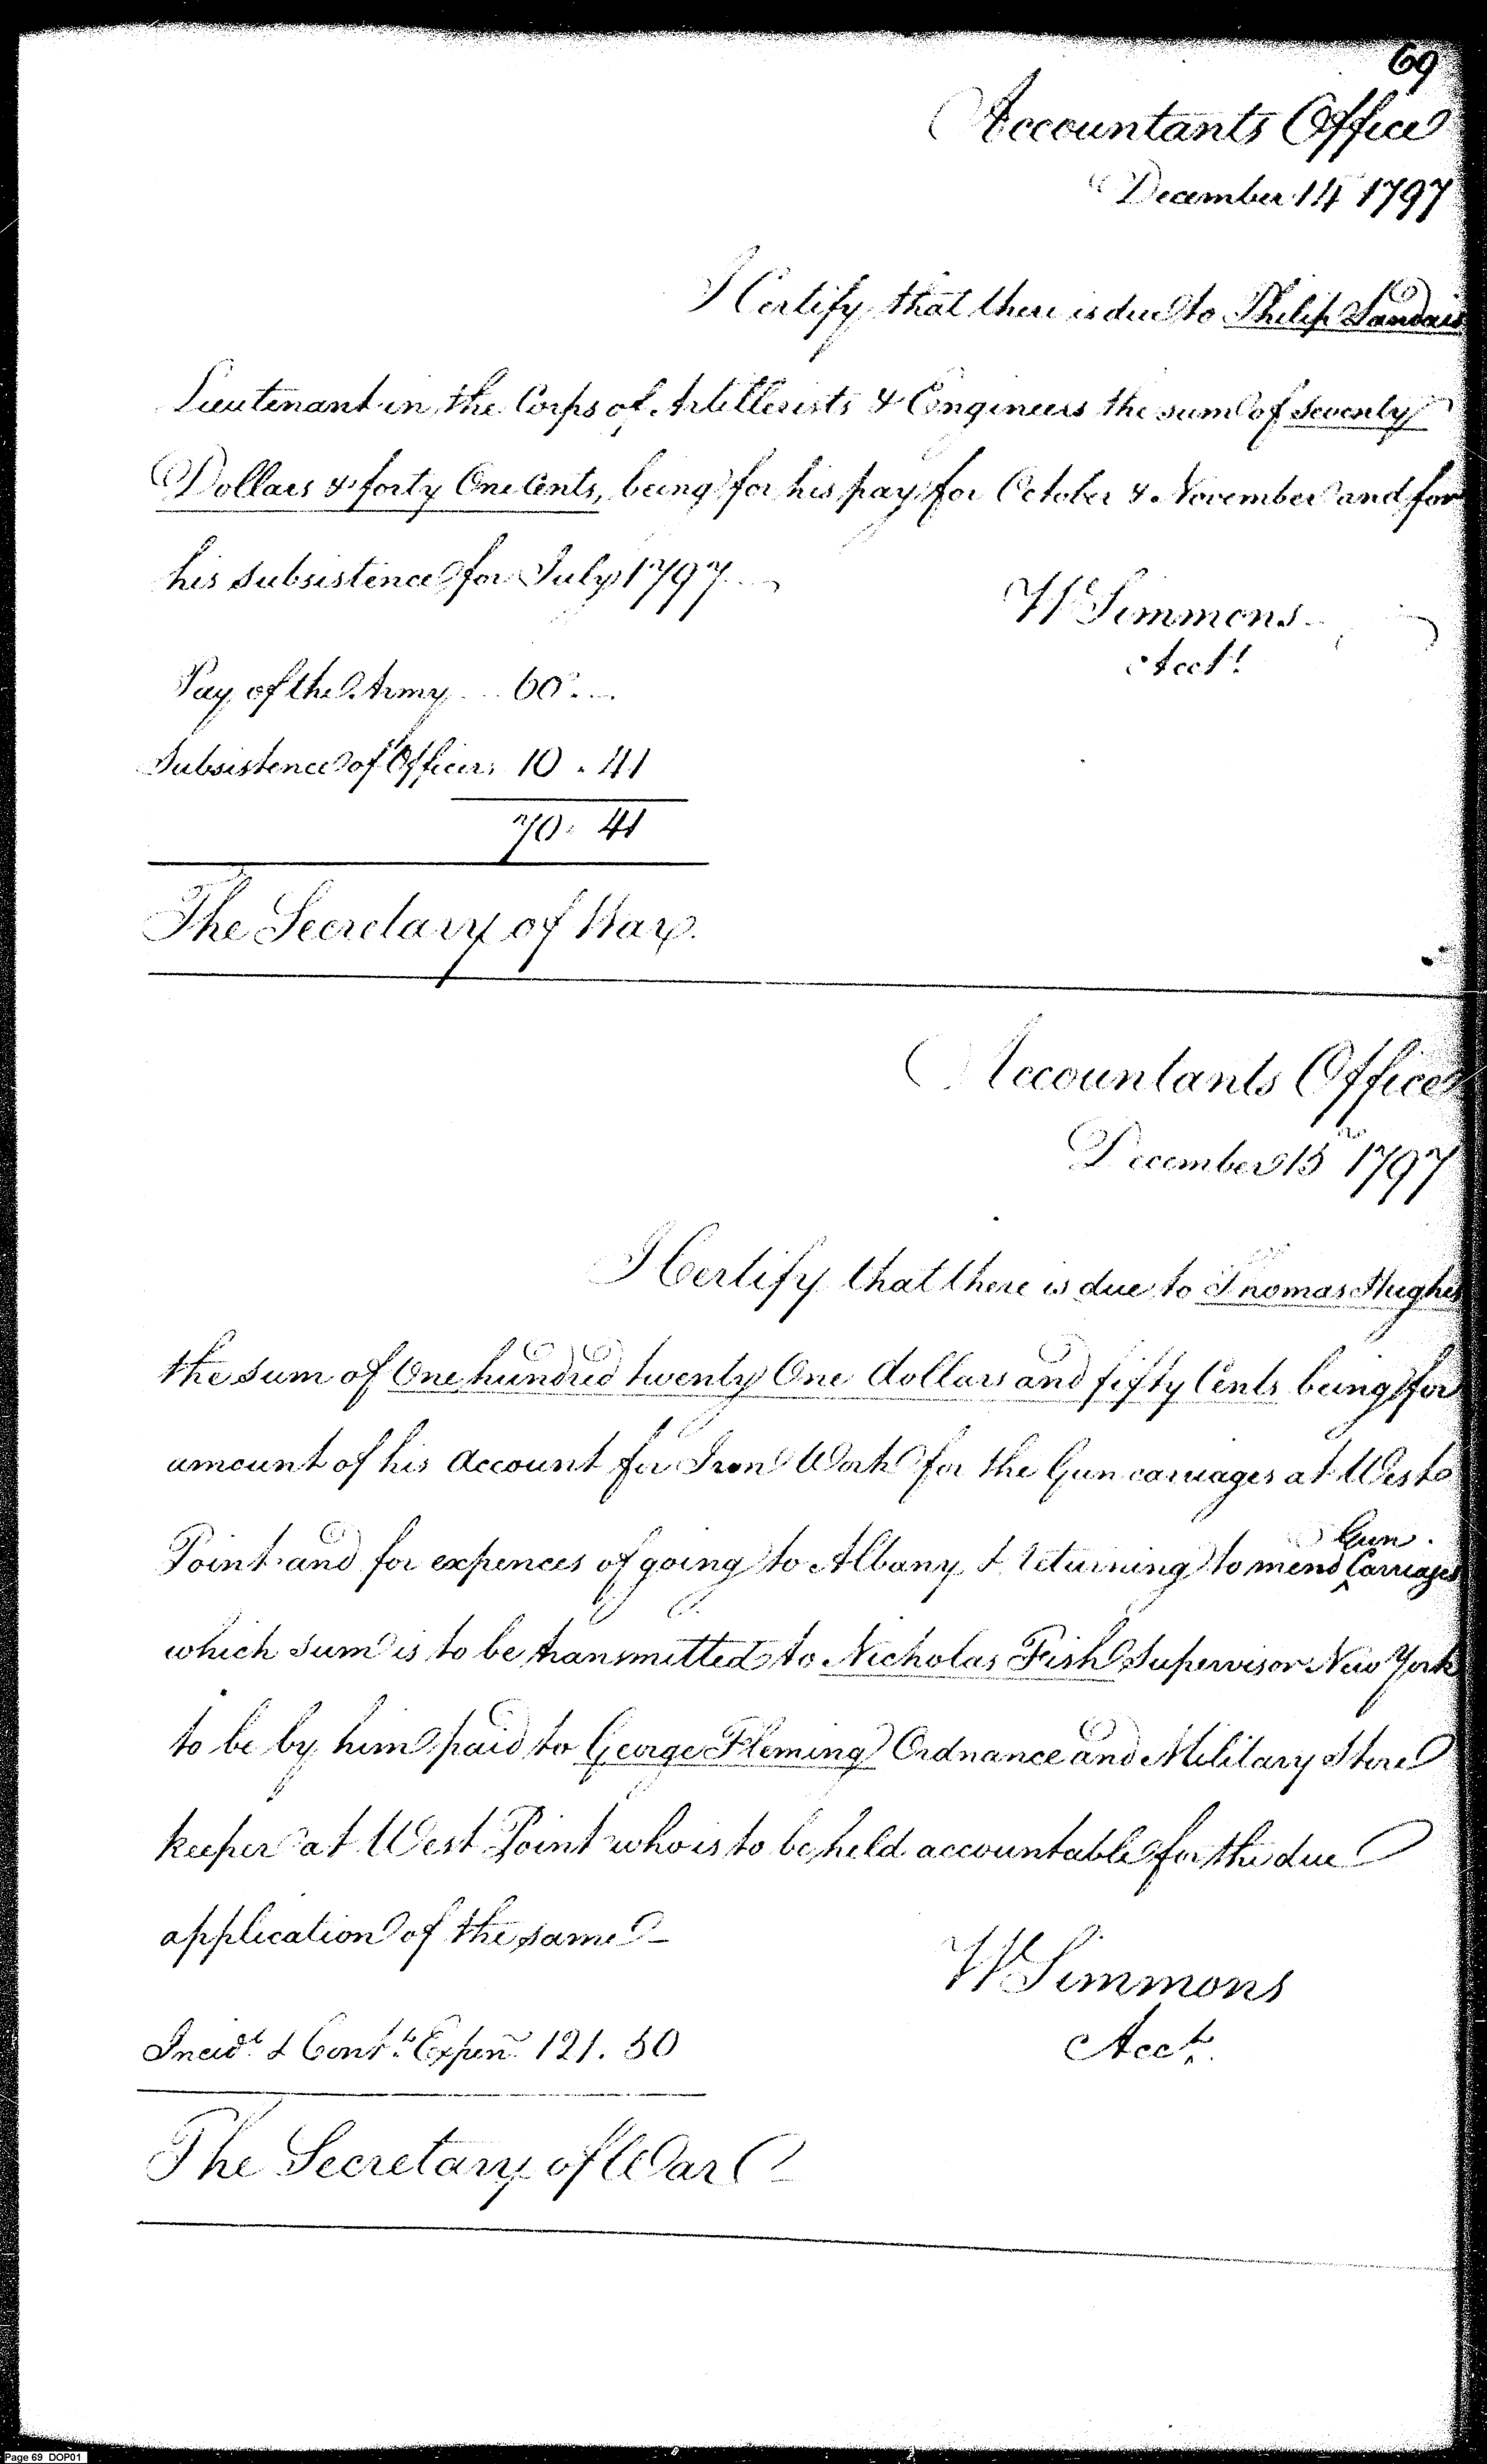 69
Accountants Office
December 14 1797
I Certify that there is due to Philip Landais
Lieutenant in the Corps of Artillerists & Engineers the sum of seventy
Dollars & forty One Cents, being for his pay for October & November and for
his subsistence for July 1797
W Simmons
Acct.
Pay of the Army 60..
Subsistence of Officers 10.41
70.41
The Secretary of War.
Accountants Office
December 15 1797
I Certify that there is due to Thomas Hughes
the sum of One hundred twenty One dollars and fifty Cents being for
amount of his Account for Iron Work for the Gun carriages at West
Point and for expences of going to Albany & returning to mend Gun Carriages
which sum is to be transmitted to Nicholas Fish Supervisor New York
to be by him paid to George Fleming Ordnance and Military Store
keeper at West Point who is to be held accountable for the due
application of the same
W Simmons
Acct.
Incidt. & Contt. Expen. 121.50
The Secretary of War
Page 69 DOP01